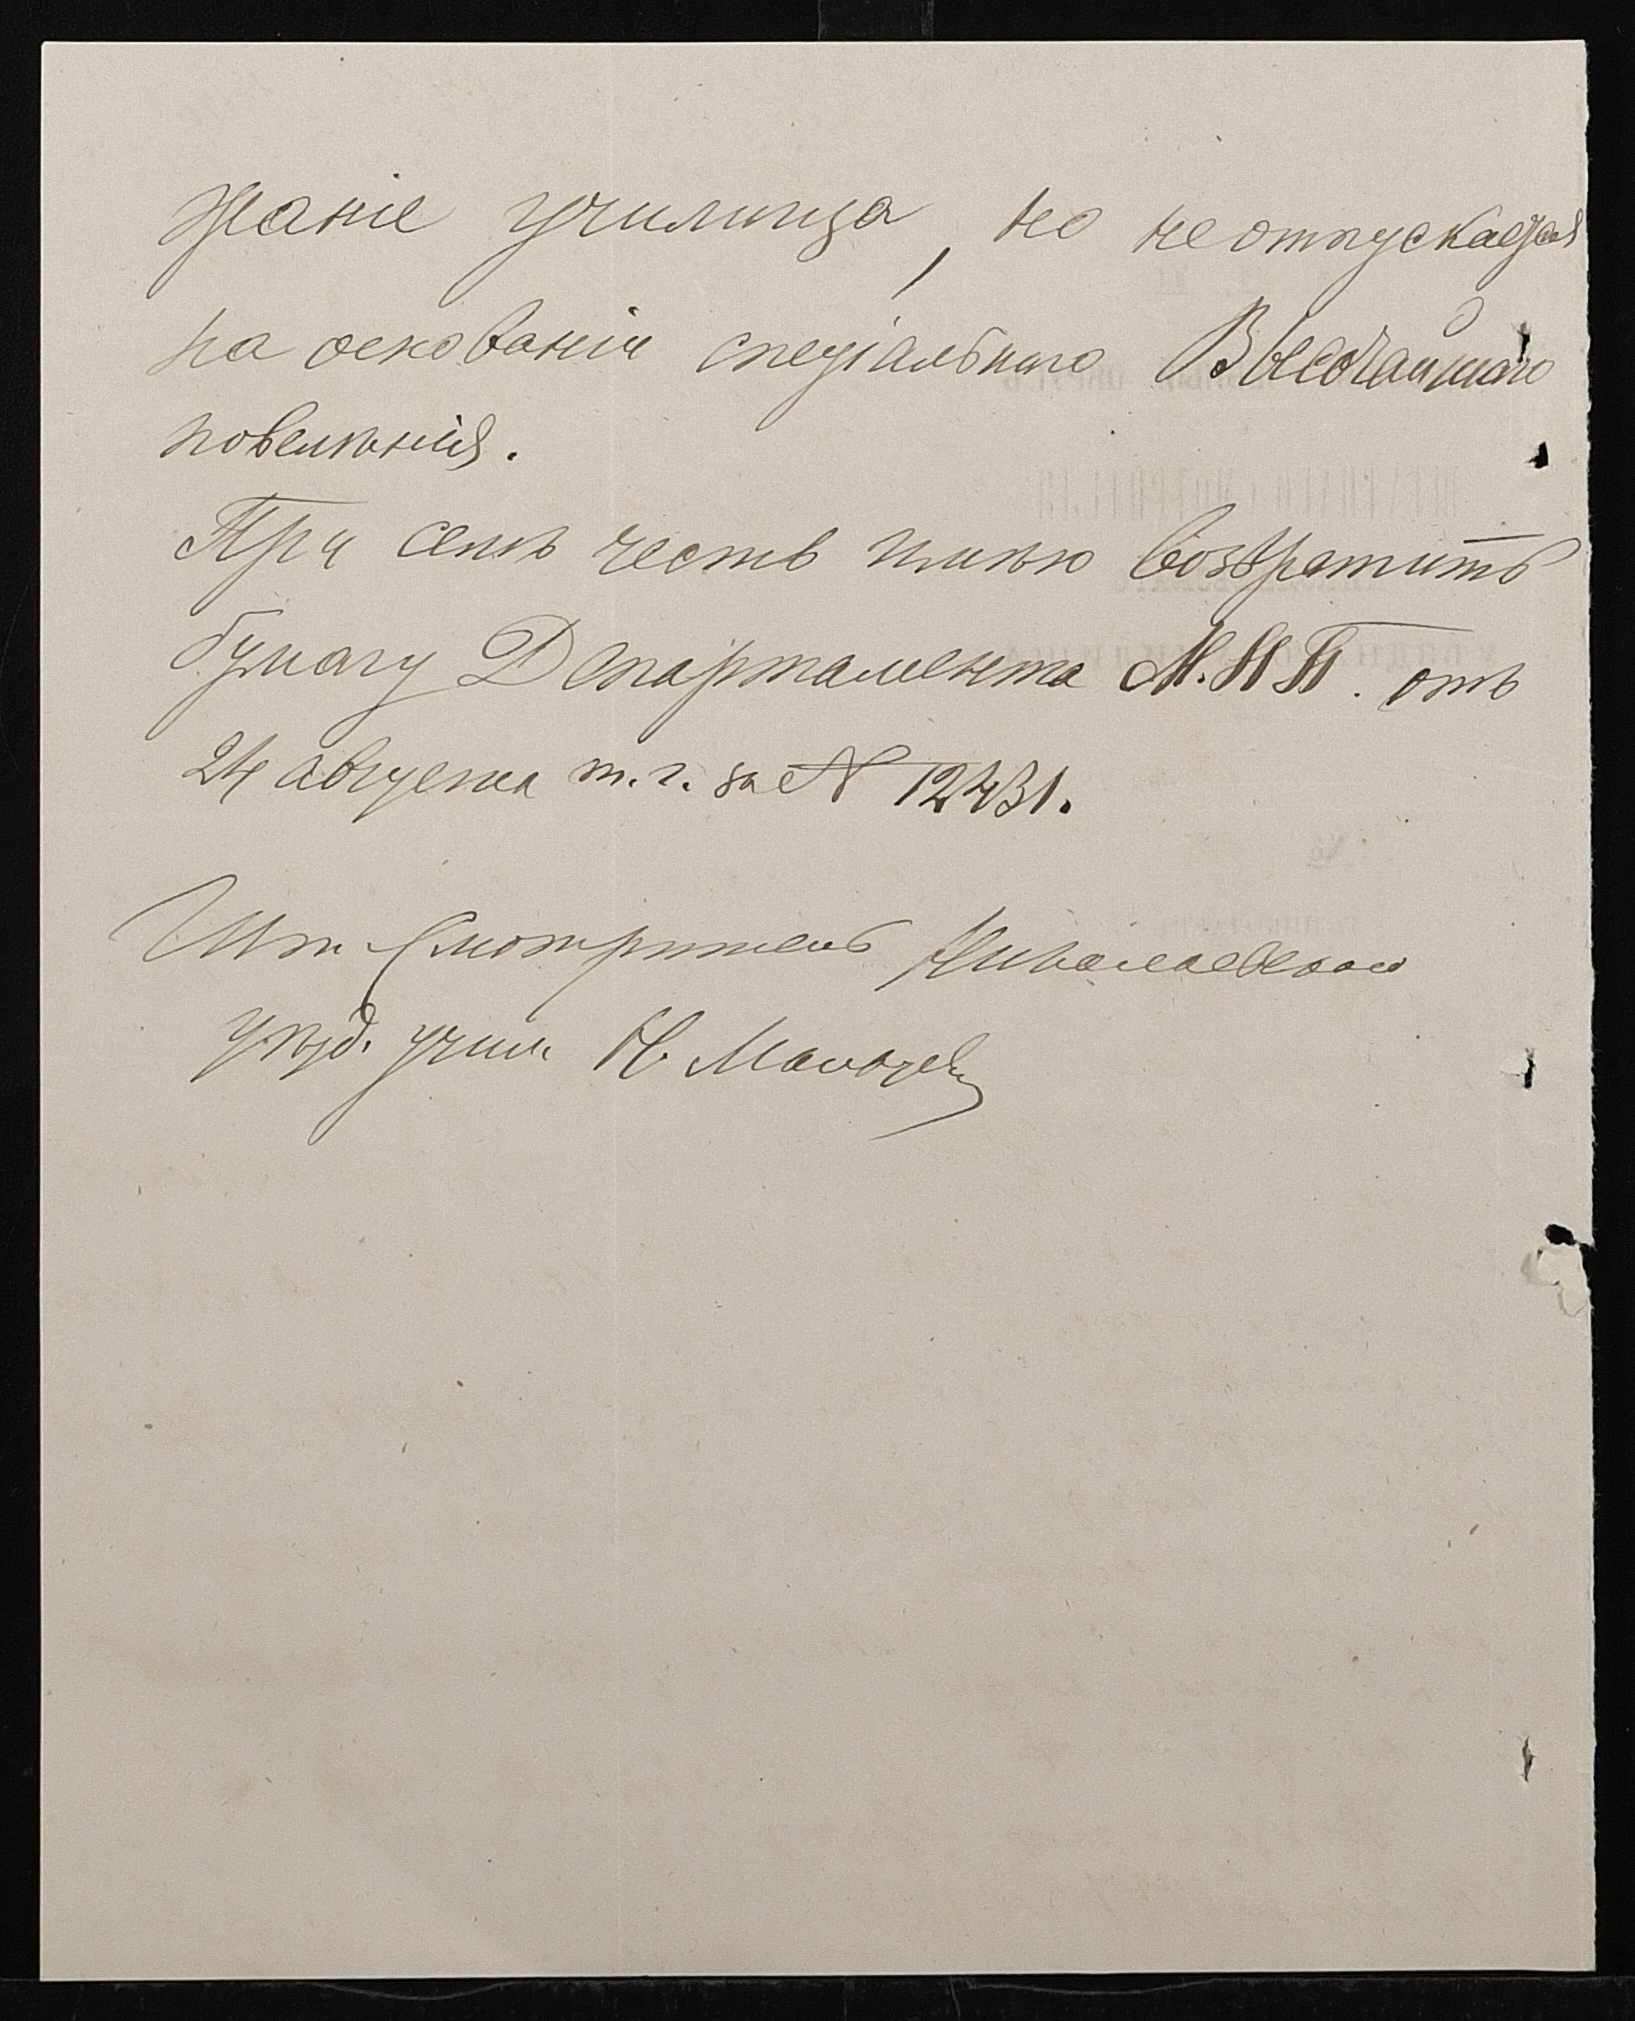 жаніе училища, но не отпускается
на основаніи спеціальнаго Высочайшаго
повелѣнія.
При семъ честь имѣю возвратить
бумагу Департамента М.Н.П. отъ
24 августа т.г. за № 12431.
Шт. Смотритель Николаевскаго
уѣзд. учил. Н.